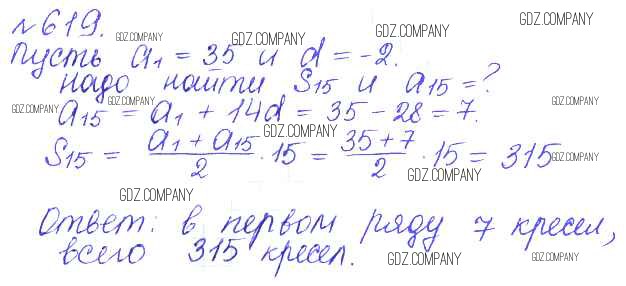 №619.
Пусть a₁ = 35 и d = -2.
надо найти S₁₅ и a₁₅ = ?
a₁₅ = a₁ + 14d = 35 - 28 = 7.
S₁₅ = (a₁ + a₁₅)/2 · 15 = (35 + 7)/2 · 15 = 315
Ответ: в первом ряду 7 кресел,
всего 315 кресел.
GDZ.COMPANY
GDZ.COMPANY
GDZ.COMPANY
GDZ.COMPANY
GDZ.COMPANY
GDZ.COMPANY
GDZ.COMPANY
GDZ.COMPANY
GDZ.COMPANY
GDZ.COMPANY
GDZ.COMPANY
GDZ.COMPANY
GDZ.COMPANY
GDZ.COMPANY